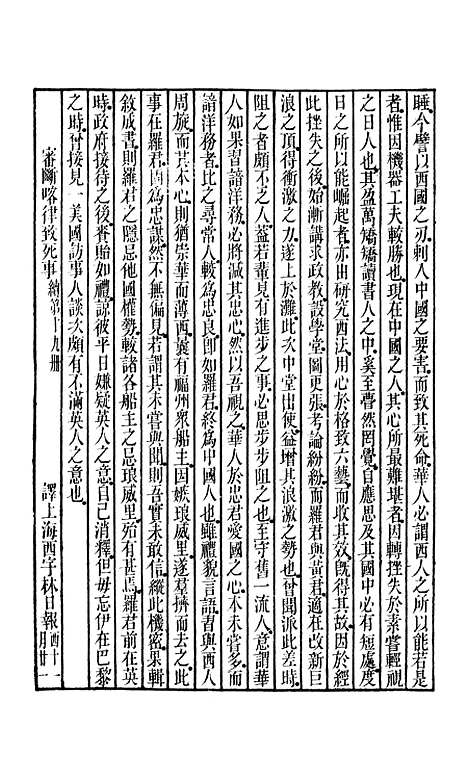 睡今譬以西國之刃刺人中國之要害而致其死命華人必謂西人之所以能若是
者惟因機器工夫較勝也與中國之人其心所最難堪者因轉挫失於素嘗輕視
之日人也其盈萬矯矯讀書人之中奚至瞢然罔覺自應思及其中必有短處度
日之所以能崛起者亦由研究西法用心於格致六藝而收其效旣得其故因於經
此挫失之後始漸講求政教設學堂圖更張考論紛紛而羅君與黃君適在改新巨
浪之頂得衝激之力遂上於灘此次中堂出使益增其浪激之勢也曾聞派此差時
阻之者頗不乏人蓋若輩見有進步之事必思步步阻之也至守舊一流人意謂華
人如果習諳洋務必將減其忠心然以吾視之華人於忠君愛國之心本未嘗多而
諳洋務者比之尋常人較爲忠良卽如羅君終爲中國人也雖禮貌言語若與西人
周旋而其本心則猶崇華而薄西曩有福州衆船主因嫉琅威里遂羣擠而去之此
事在羅君固爲忠謀然不無偏見若謂其未嘗與聞則吾實未敢信縱此機密果輯
敘成書則羅君之隱忌他國權勢較諸各船主之忌琅威里殆有甚焉羅君前在英
時政府接待之後賚貽如禮諒彼平日嫌疑英人之意自己消釋但毋忘伊在巴黎
之時曾接見一美國訪事人談次頗有不滿英人之意也
審斷喀律致死事 續第十九冊　譯上海西字林日報 西十一月廿一